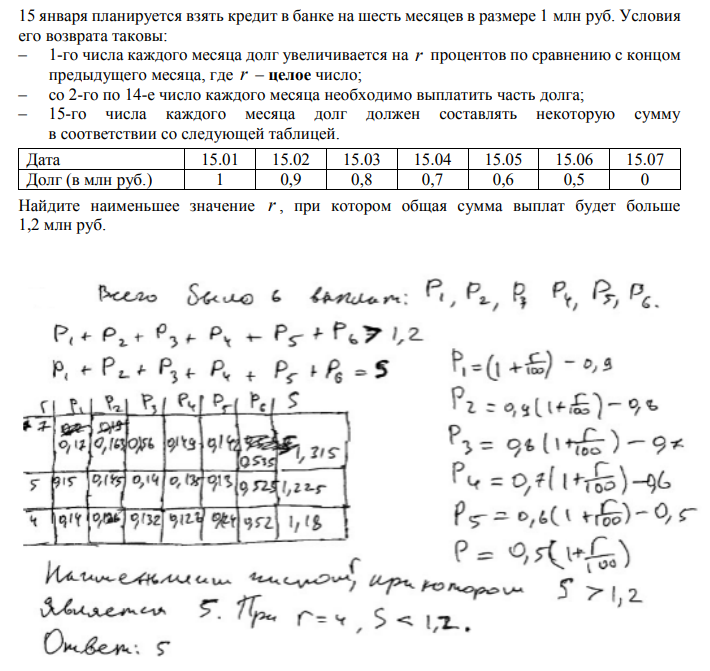 15 января планируется взять кредит в банке на шесть месяцев в размере 1 млн руб. Условия
его возврата таковы:
– 1-го числа каждого месяца долг увеличивается на r процентов по сравнению с концом
предыдущего месяца, где r – целое число;
– со 2-го по 14-е число каждого месяца необходимо выплатить часть долга;
– 15-го числа каждого месяца долг должен составлять некоторую сумму
в соответствии со следующей таблицей.
Дата 15.01 15.02 15.03 15.04 15.05 15.06 15.07
Долг (в млн руб.) 1 0,9 0,8 0,7 0,6 0,5 0
Найдите наименьшее значение r, при котором общая сумма выплат будет больше
1,2 млн руб.
Всего было 6 выплат: P₁, P₂, P₃ P₄, P₅, P₆.
P₁ + P₂ + P₃ + P₄ + P₅ + P₆ > 1,2
P₁ + P₂ + P₃ + P₄ + P₅ + P₆ = S
r P₁ P₂ P₃ P₄ P₅ P₆ S
7 0,17 0,163 0,156 0,149 0,142 0,535 1,315
5 0,15 0,145 0,14 0,135 0,13 0,525 1,225
4 0,14 0,132 0,52 1,18
P₁ = (1 + r/100) – 0,9
P₂ = 0,9(1 + r/100) – 0,8
P₃ = 0,8(1 + r/100) – 0,7
P₄ = 0,7(1 + r/100) – 0,6
P₅ = 0,6(1 + r/100) – 0,5
P = 0,5(1 + r/100)
Наименьшим числом r, при котором S > 1,2
является 5. При r = 4, S < 1,2.
Ответ: 5